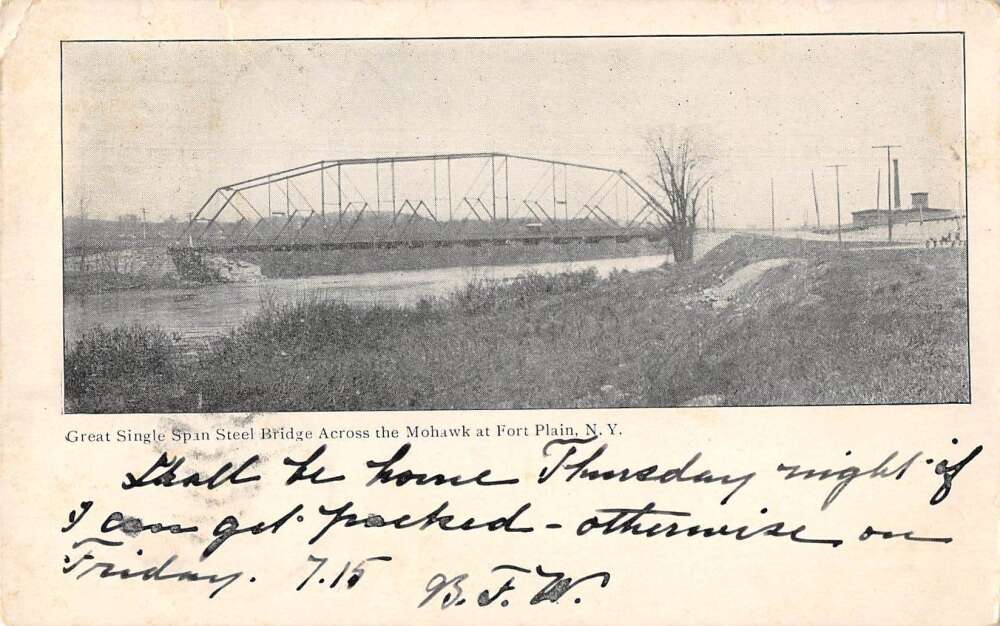 Great Single Span Steel Bridge Across the Mohawk at Fort Plain, N. Y.
Shall be home Thursday night if
I can get packed - otherwise on
Friday. 7.15 B. F. W.